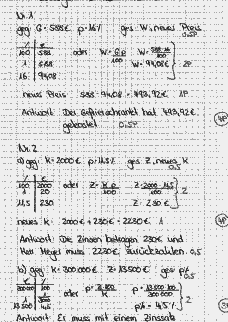 Nr. 1
geg: G = 588€ p = 16% ges: W, neues Preis 0,5P
% € oder W = G·p / 100 W = 588·16 / 100
100 588
1 5,88 W = 94,08€ 2P
16 94,08
neues Preis 588 - 94,08 = 493,92€ 1P
Antwort: Der Gefrierschrank hat 493,92€
gekostet 0,5P
4P
Nr. 2
a) geg: K = 2000€ p = 11,5% ges: Z, neues K
% € oder Z = K·p / 100 Z = 2000·11,5 / 100
100 2000
1 20 2
11,5 230 Z = 230€
neues K: 2000€ + 230€ = 2230€ 1
Antwort: Die Zinsen betragen 230€ und
Herr muss 2230€ zurückzahlen 0,5
4P
b) geg: K = 300000€ Z = 13500€ ges: p% 0,5
oder p = Z·100 / K p = 13500·100 / 300000
300000 100
13500 4,5 p% = 4,5% 2
Antwort: Er muss mit einem Zinssatz